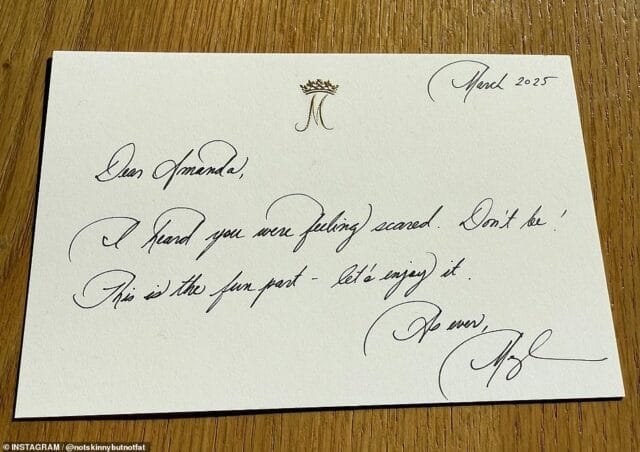 March 2025
M
Dear Amanda,
I heard you were feeling scared. Don't be!
This is the fun part - let's enjoy it.
As ever,
© INSTAGRAM / @notskinnybutnotfat